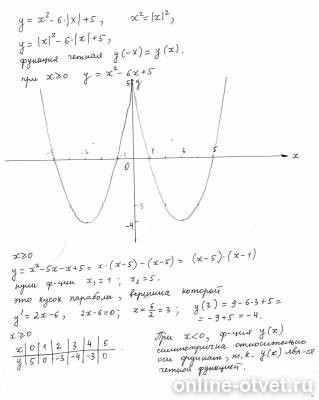 y = x² - 6·|x| + 5, x² = |x|²,
y = |x|² - 6·|x| + 5,
функция четная y(-x) = y(x).
при x≥0 y = x² - 6x + 5
y
5
-5 -3 -1 1 3 5 x
0
-3
-4
x≥0
y = x² - 5x - x + 5 = x·(x-5) - (x-5) = (x-5)·(x-1)
нули ф-ции x₁ = 1; x₂ = 5.
это кусок параболы, вершина которой
y' = 2x - 6, 2x - 6 = 0; x = 6/2 = 3; y(3) = 9 - 6·3 + 5 =
= -9 + 5 = -4.
x≥0
x 0 1 2 3 4 5
y 5 0 -3 -4 -3 0
При x<0, ф-ция y(x)
симметрична относительно
оси ординат, т.к. y(x) явл-ся
четной функцией.
online-otvet.ru